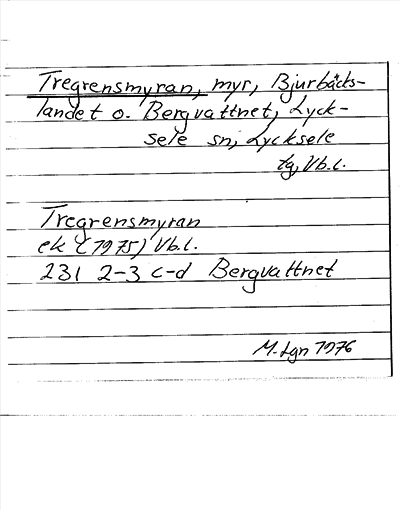 Tregrensmyran, myr, Bjurbäcks-
landet o. Bergvattnet, Lyck-
sele sn, Lycksele
tg, Vb.l.
Tregrensmyran
ek (1975) Vb.l.
231 2-3 c-d Bergvattnet
M. Lgn 1976